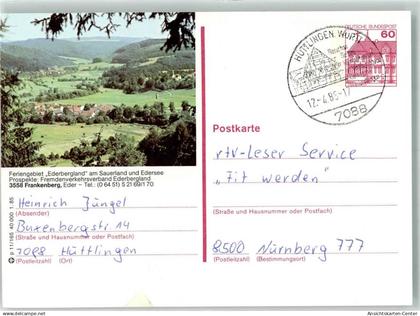 HÜTTLINGEN, WÜRTT
DEUTSCHE BUNDESPOST
60
12.-4.85-17
7088
Postkarte
Feriengebiet „Ederbergland" am Sauerland und Edersee
Prospekte: Fremdenverkehrsverband Ederbergland
3558 Frankenberg, Eder – Tel.: (0 64 51) 5 21 69/1 70
Heinrich Jüngel
(Absender)
Buxenbergstr 14
(Straße und Hausnummer oder Postfach)
7088 Hüttlingen
(Postleitzahl) (Ort)
p 11/165 40 000 1.85
rtv-Leser Service
"Fit werden"
(Straße und Hausnummer oder Postfach)
8500 Nürnberg 777
(Postleitzahl) (Bestimmungsort)
www.ansichtskarten-center.de
Ansichtskarten-Center